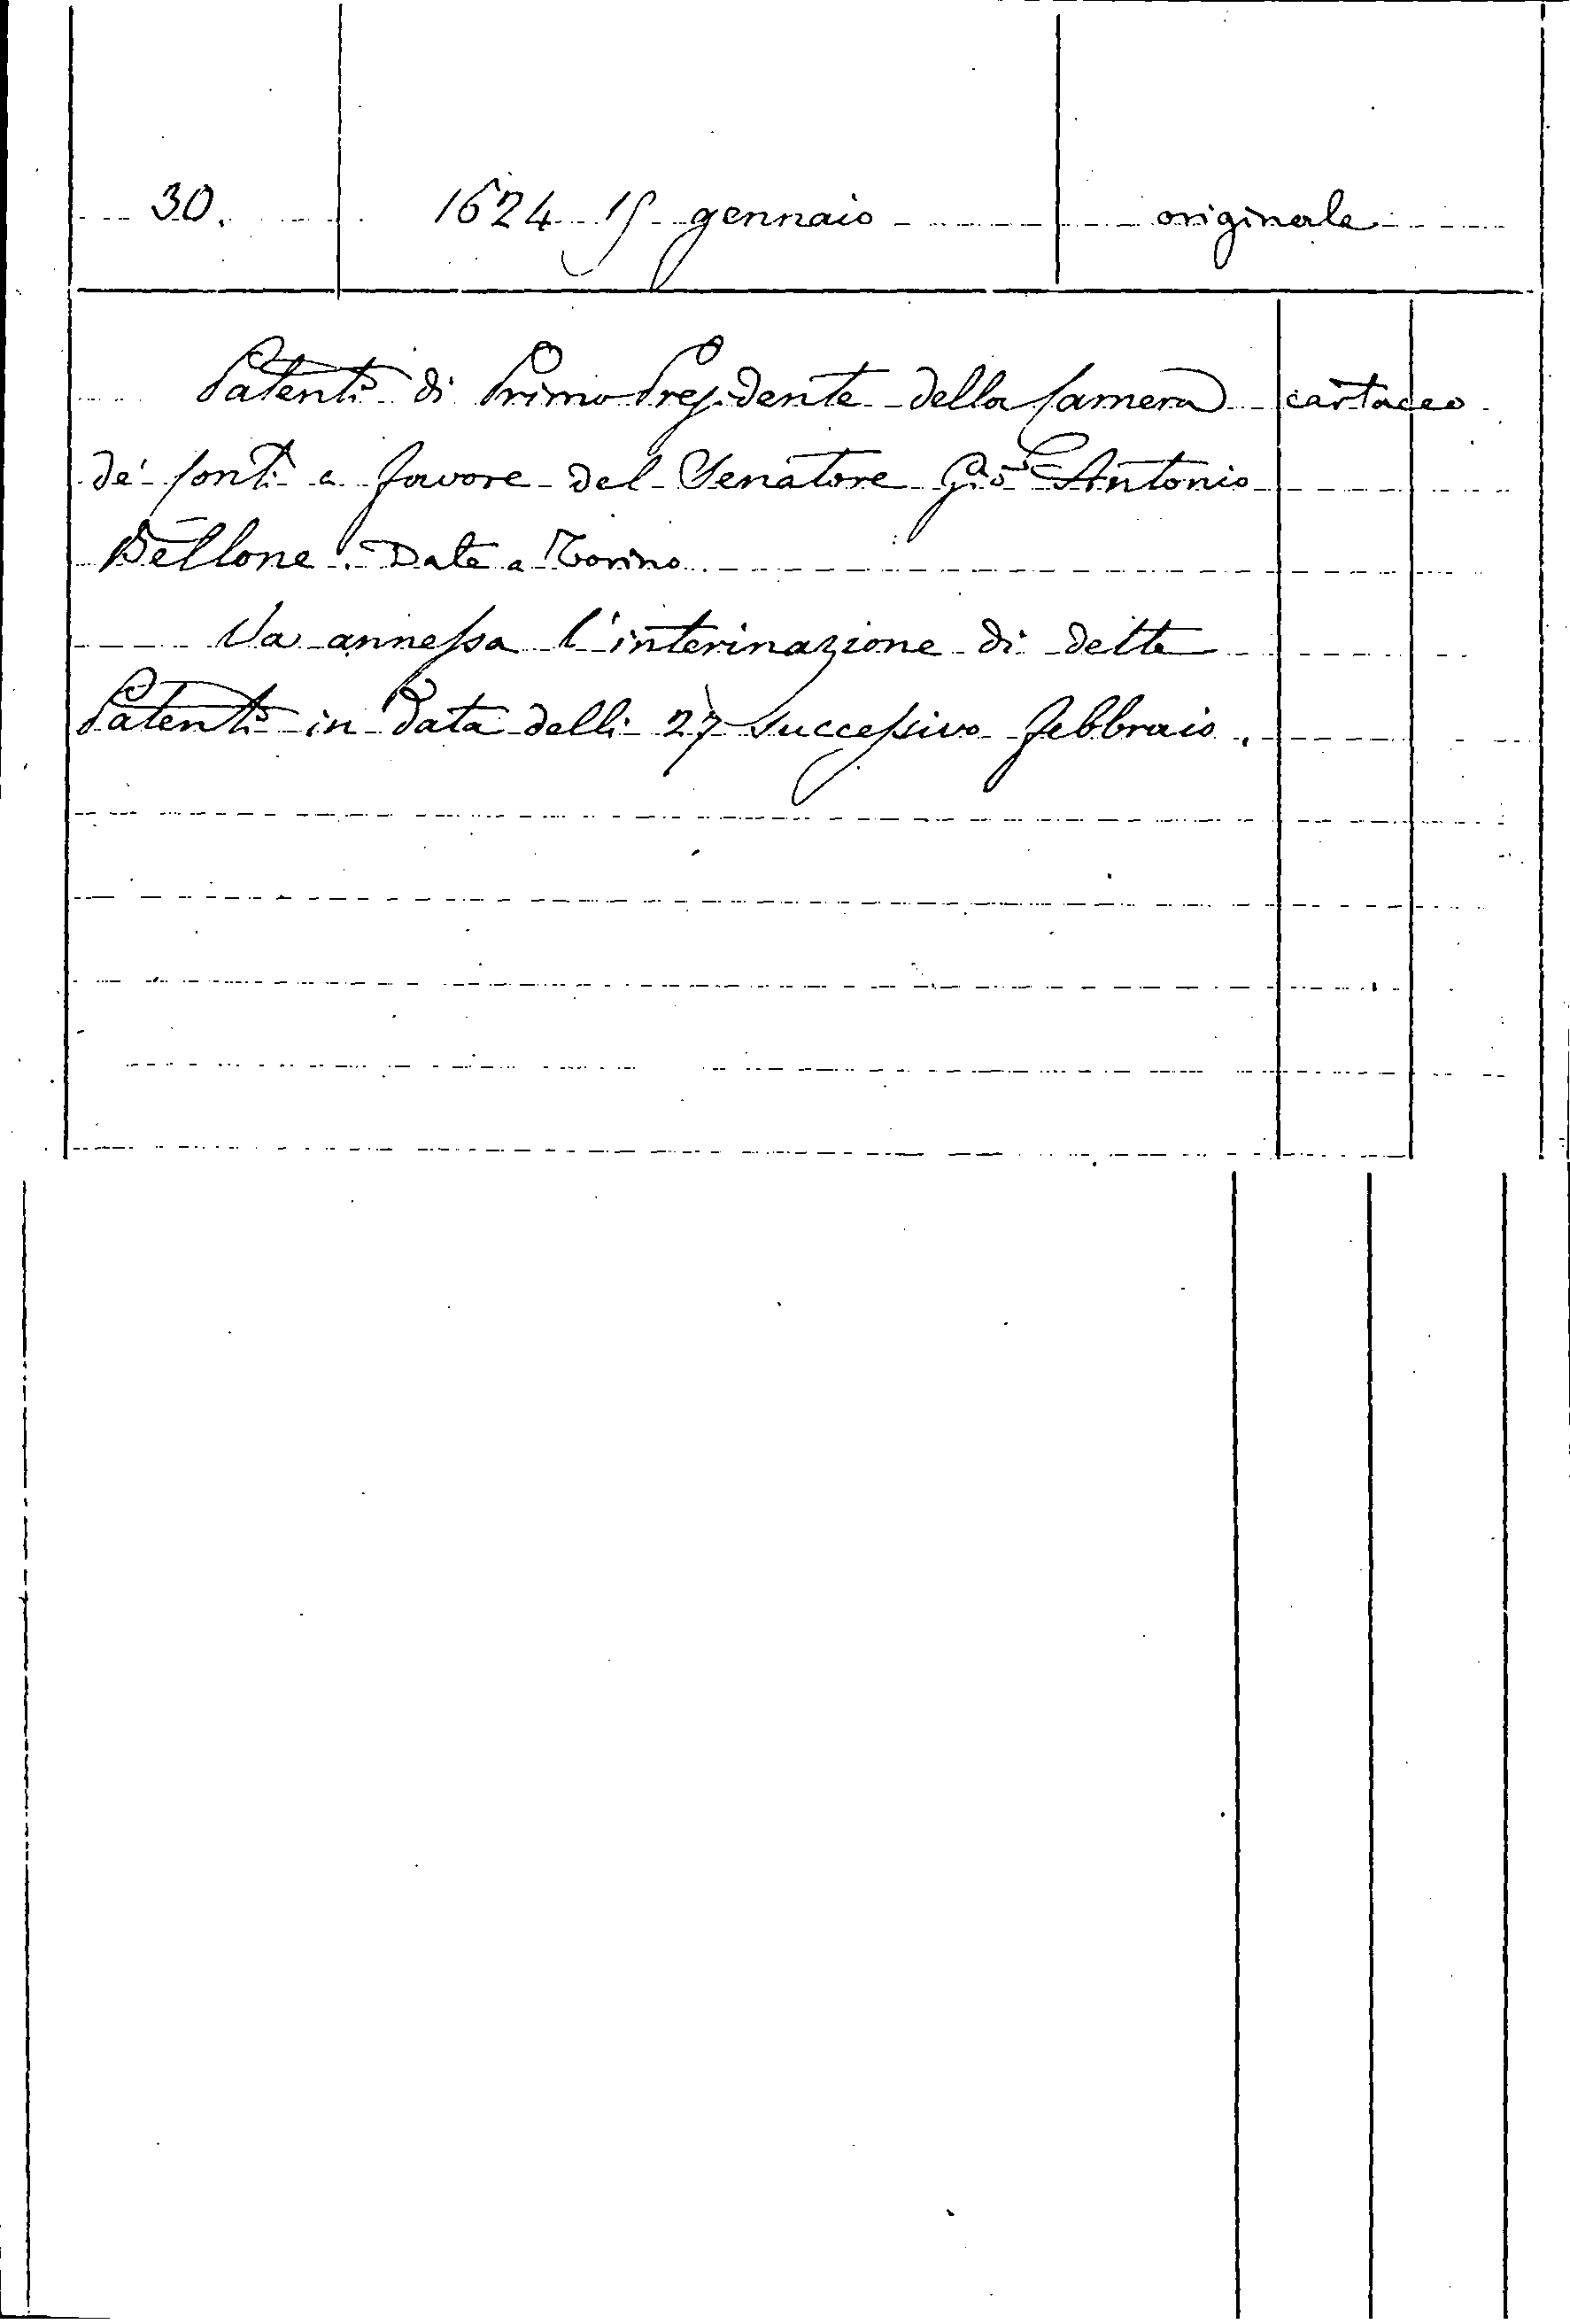 30. 1624 15 gennaio originale
Patenti di Primo Presidente della Camera cartaceo
de' Conti a favore del Senatore Gio Antonio
Bellone. Date a Torino
Va annessa l'interinazione di dette
Patenti in data delli 27 successivo febbraio.